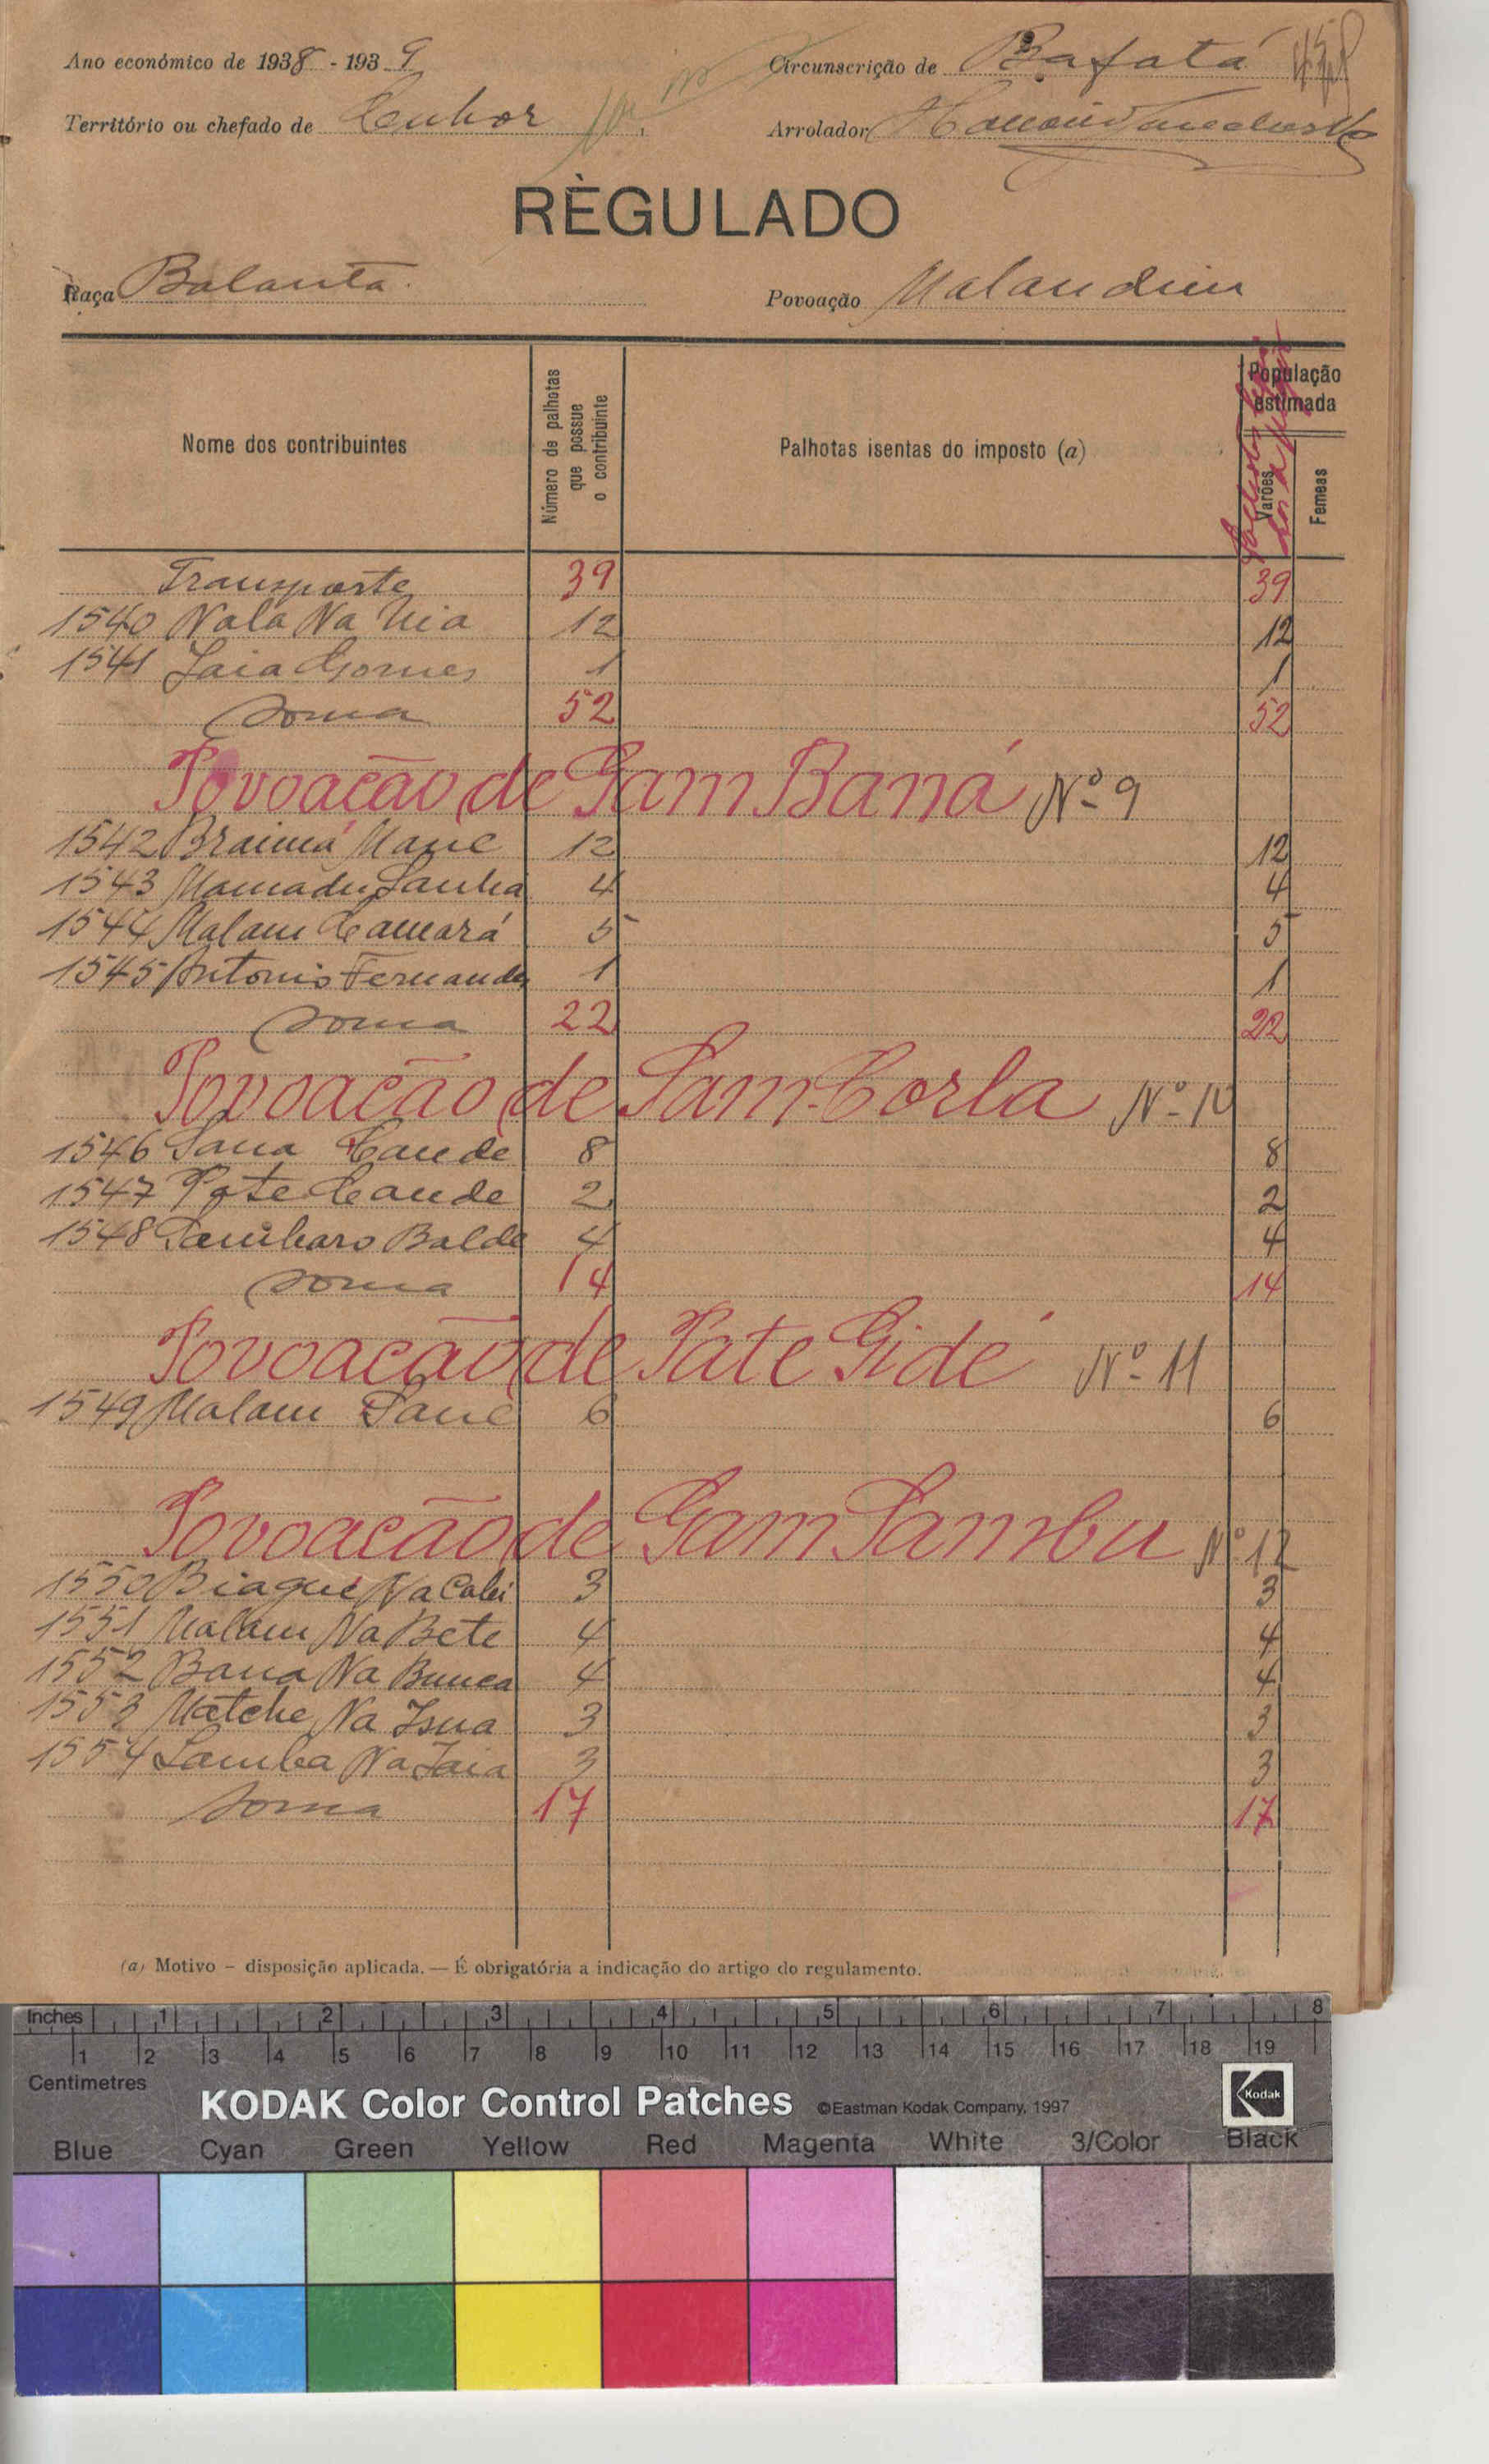 Ano económico de 1938 - 1939
Circunscrição de Bafatá
Território ou chefado de Cuhor
Arrolador
RÈGULADO
Raça Balanta
Povoação Malandim
Nome dos contribuintes
Número de palhotas que possue o contribuinte
Palhotas isentas do imposto (a)
População estimada
Varões
Femeas
Transporte 39 39
1540 Nala Na Nia 12 12
1541 Jaia Gomes 1 1
Soma 52 52
Povoação de Gam Baná Nº 9
1542 Braima Mane 12 12
1543 Mamadu Sanha 4 4
1544 Malam Camará 5 5
1545 Antonio Fernandes 1 1
Soma 22 22
Povoação de Sam-Corla Nº 10
1546 Sana Cande 8 8
1547 Pate Cande 2 2
1548 Sambaro Balde 4 4
Soma 14 14
Povoação de Pate Gidé Nº 11
1549 Malam Sane 6 6
Povoação de Gam Sambu Nº 12
1550 Biague Na Cabi 3 3
1551 Malam Na Bete 4 4
1552 Bana Na Bunca 4 4
1553 Matche Na Isna 3 3
1554 Lamba Na Jaia 3 3
Soma 17 17
(a) Motivo – disposição aplicada. — É obrigatória a indicação do artigo do regulamento.
Inches 1 2 3 4 5 6 7 8
1 2 3 4 5 6 7 8 9 10 11 12 13 14 15 16 17 18 19
Centimetres
KODAK Color Control Patches ©Eastman Kodak Company, 1997 Kodak
Blue Cyan Green Yellow Red Magenta White 3/Color Black